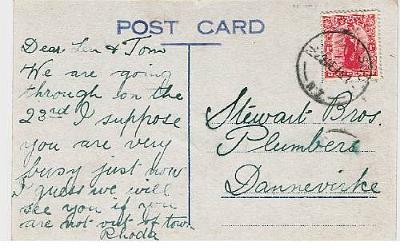 POST CARD
Dear Len & Tom
We are going
through on the
23rd I suppose
you are very
busy just now
I guess we will
see you if you
are not out of town
Rhoda
Stewart Bros.
Plumbers
Dannevirke